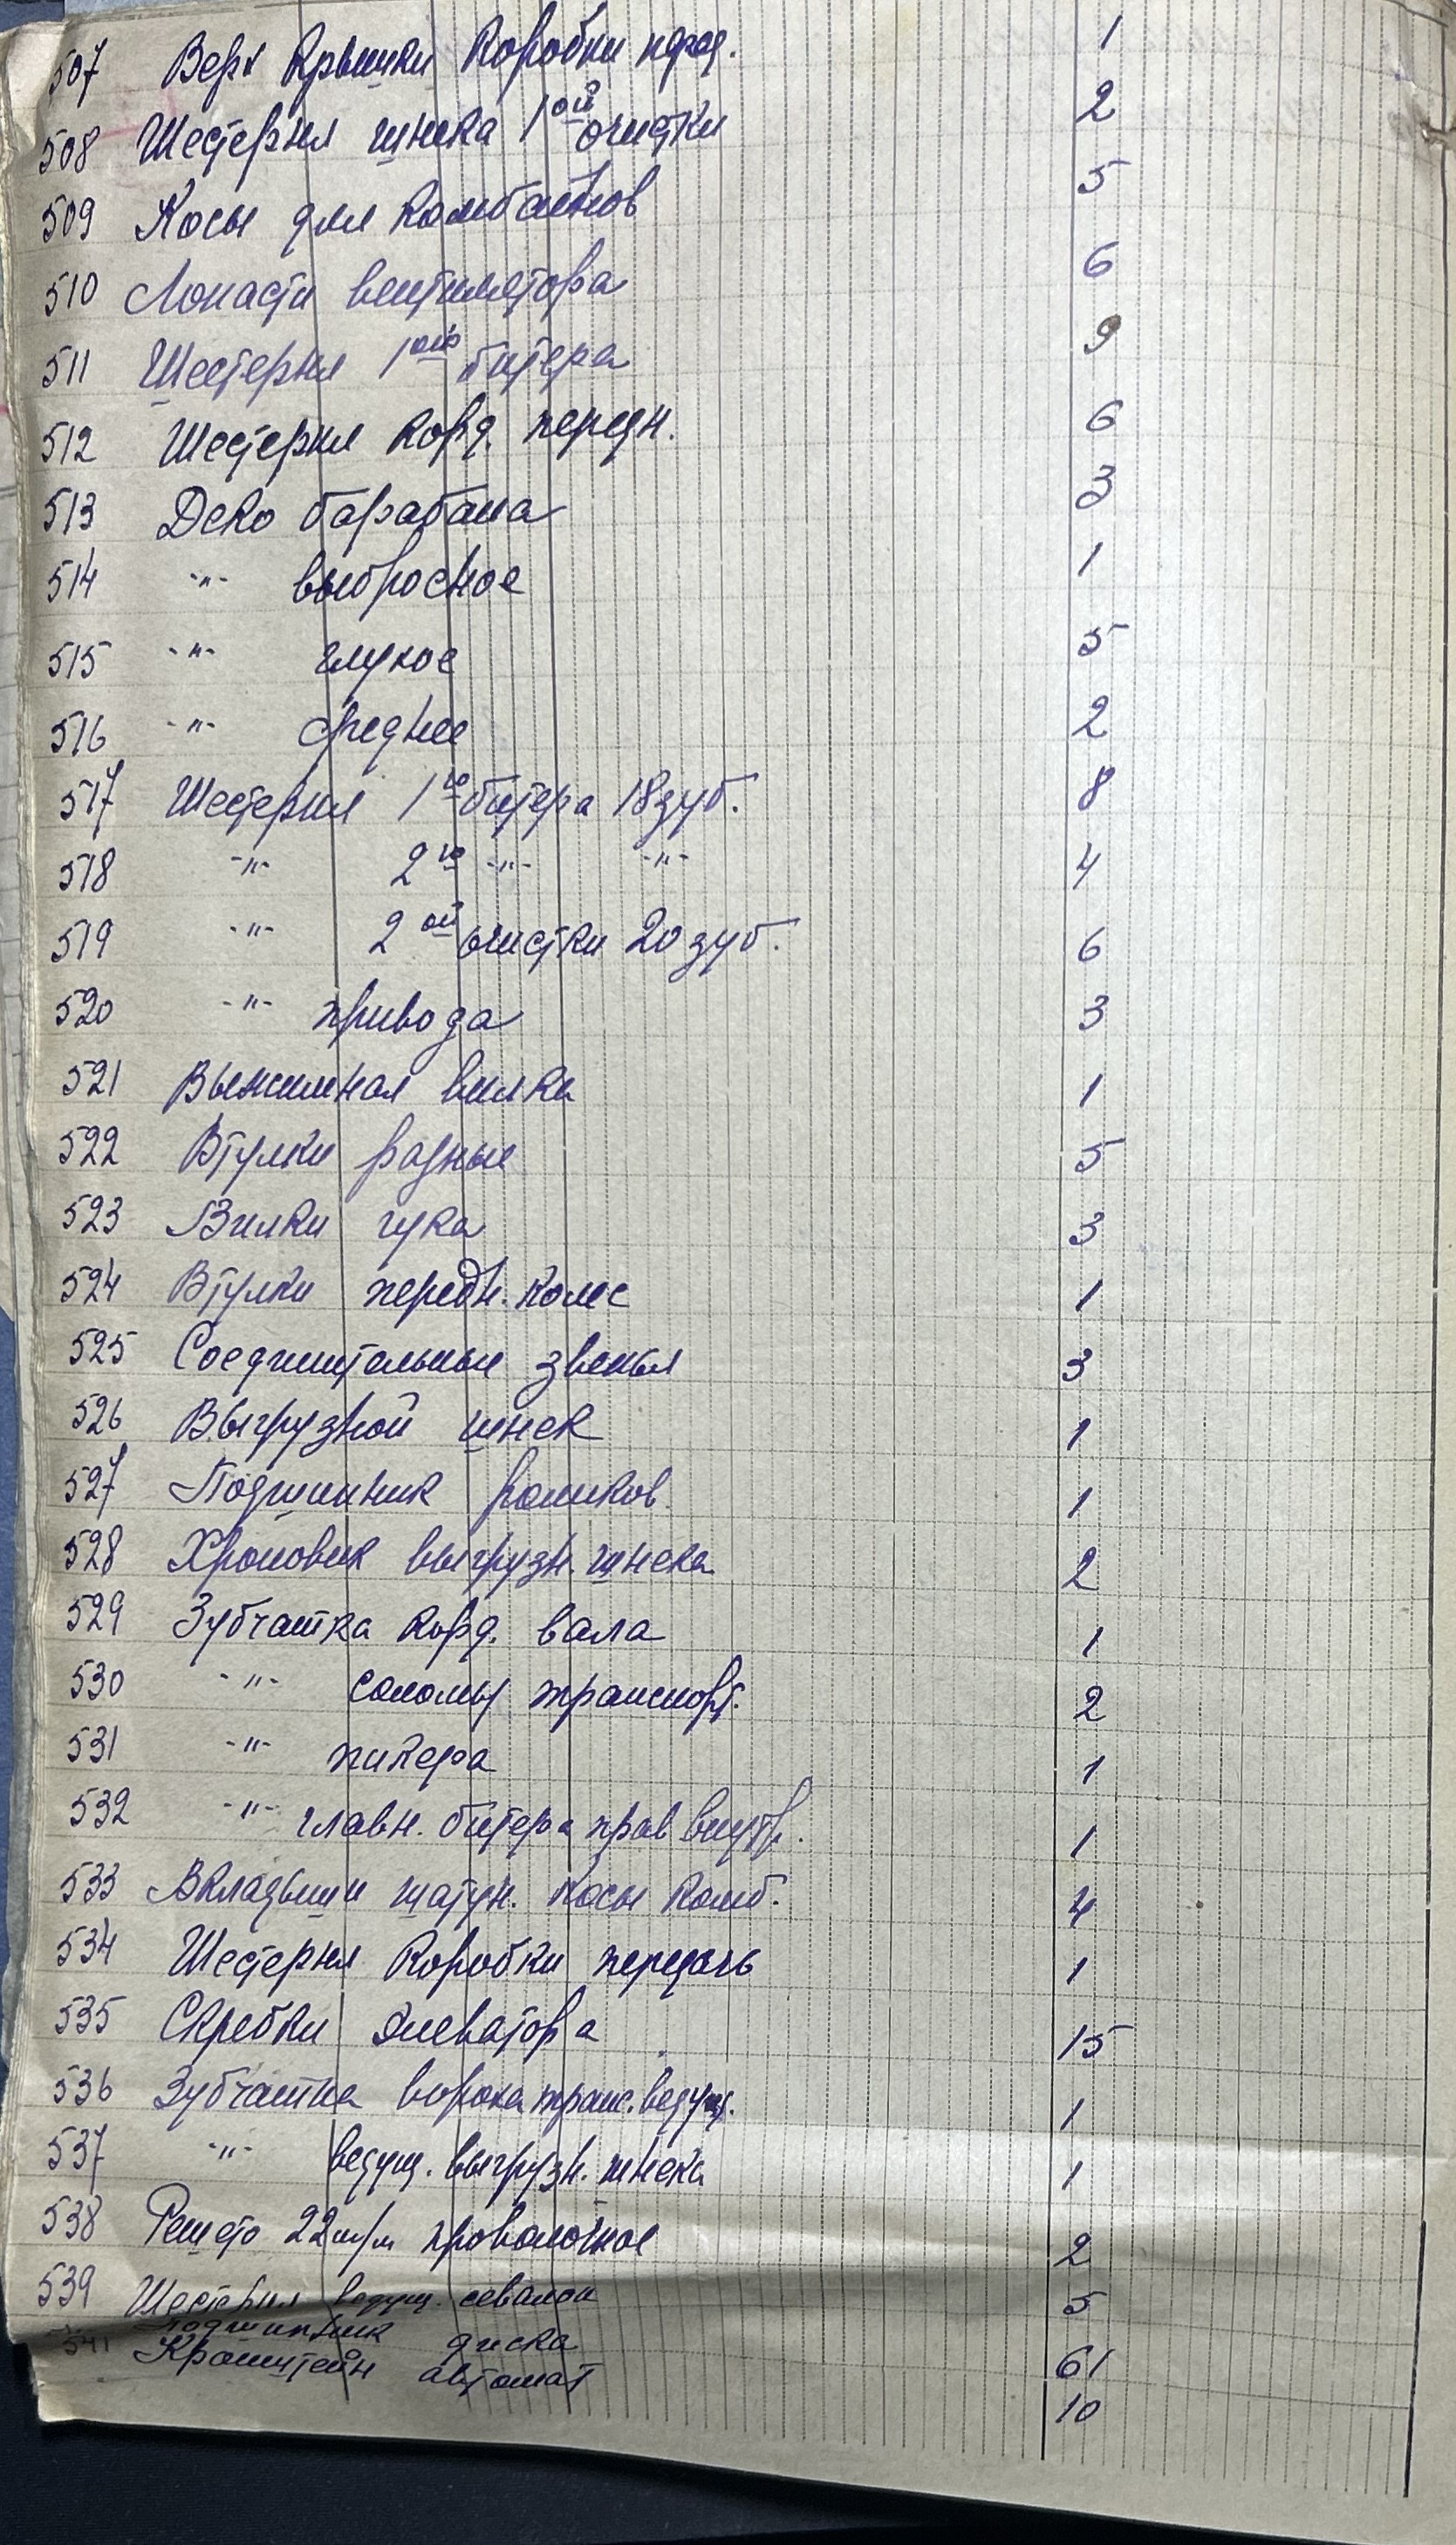 507 Верх крышки коробки перед. 1
508 Шестерня шнека 1ой очистки 2
509 Косы для комбайнов 5
510 Лопасти вентилятора 6
511 Шестерня 1ого битера 9
512 Шестерня кард. передн. 6
513 Деко барабана 3
514 -"- выбросное 1
515 -"- глухое 5
516 -"- среднее 2
517 Шестерня 1го битера 18 зуб. 8
518 -"- 2го -"- -"- 4
519 -"- 2ой очистки 20 зуб. 6
520 -"- привода 3
521 Выжимная вилка 1
522 Втулки разные 5
523 Вилки гука 3
524 Втулки передн. колес 1
525 Соединительные звенья 3
526 Выгрузной шнек 1
527 Подшипник роликов 1
528 Храповик выгрузн. шнека 2
529 Зубчатка кард. вала 1
530 -"- соломы транспорт. 2
531 -"- пикера 1
532 -"- главн. битера прав внутр. 1
533 Вкладыши шатун. косы комб. 4
534 Шестерня коробки передачь 1
535 Скребки элеватора 15
536 Зубчатка вороха транс. ведущ. 1
537 -"- ведущ. выгрузн. шнека 1
538 Решето 22 м/м проволочное 2
539 Шестерня ведущ. сеялки 5
Подшипник диска 61
541 Кронштейн автомат 10